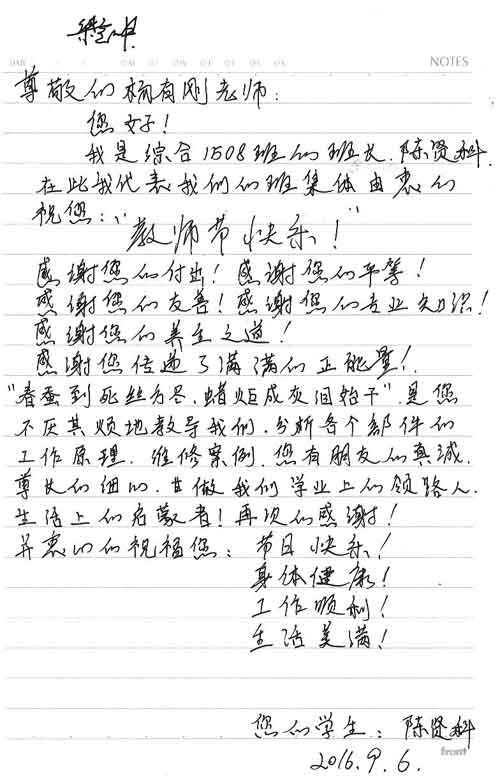 NOTES
尊敬们杨有刚老师:
您好!
我是综合1508班们班长.陈贤科.
在此我代表我们们班集体由衷们
祝您:
"教师节快乐!"
感谢您们付出!感谢您们平等!
感谢您们友善!感谢您们专业知识!
感谢您们养生之道!
感谢您传递了满满们正能量!
"春蚕到死丝方尽.蜡炬成灰泪始干".是您
不厌其烦地教导我们.分析各个部件们
工作原理.维修案例.您有朋友们真诚.
尊长们细心.甘做我们学业上们领路人.
生活上们启蒙者!再次们感谢!
并衷心们祝福您:节日快乐!
身体健康!
工作顺利!
生活美满!
您们学生:陈贤科
front
2016.9.6.